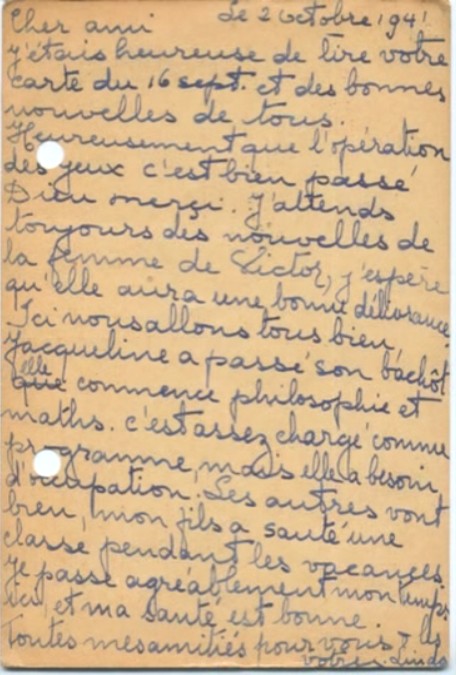 Cher ami Le 2 octobre 1941
J'étais heureuse de lire votre
carte du 16 sept. et des bonnes
nouvelles de tous.
Heureusement que l'opération
des yeux c'est bien passé
Dieu merçi. J'attends
toujours des nouvelles de
la femme de Victor, j'espère
qu'elle aura une bonne délivrance.
Ici nous allons tous bien
Jacqueline a passé son bachôt
elle
que commence philosophie et
maths. c'est assez chargé comme
programme, mais elle a besoin
d'occupation. Les autres vont
bien, mon fils a sauté une
classe pendant les vacances.
Je passe agréablement mon temps
ici, et ma santé est bonne.
Toutes mes amitiés pour vous & les
votres. Linda